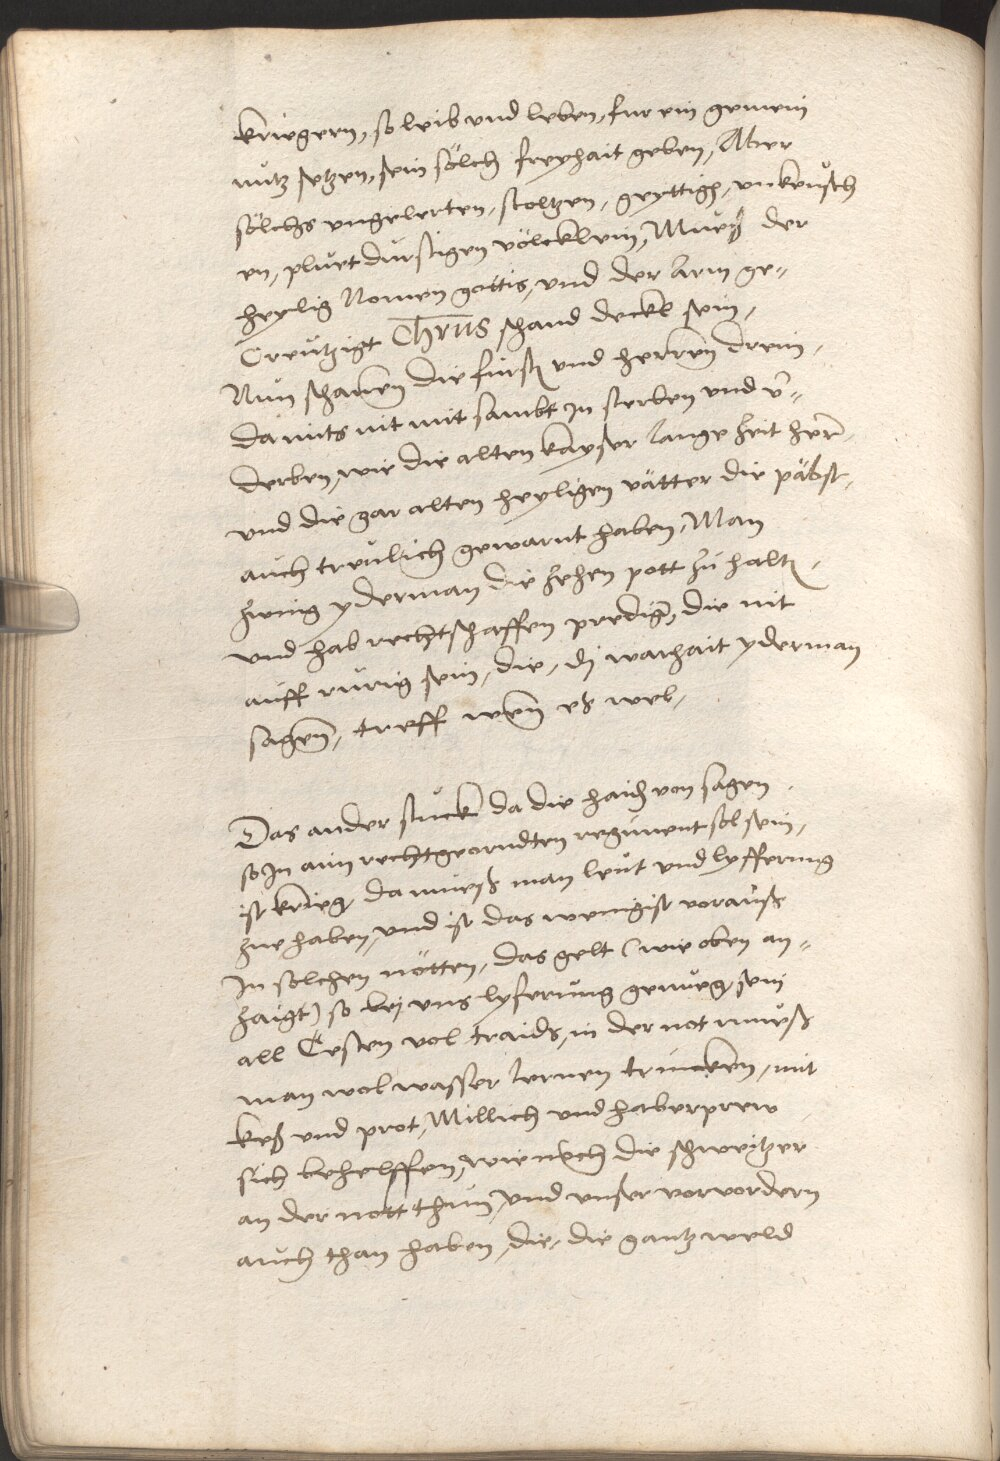 kriegern, so leib und leben, fur ein gemein
nutz setzen, sein sölch freyhait geben, Aber
sölchs ungelerten, stoltzen, geyttigen, unkeusch
en, pluetdurstigen völcklein, Mueß der
heylig Nomen gottis, und der Arm ge-
Creutzigt Chrus schand deckl sein,
Nun schauen die furst und herren drein,
damits nit mit sambt In sterben und v-
derben, wie die alten kayser lange Zeit her
und die gar alten heyligen vätter die päbst,
auch treulich gewarnt haben, Man
Zwing yderman die Zehen pott Zu halt,
und hab rechtschaffen prediger, die nit
auff rurig sein, die, dj warhait yderman
sagen, treff wem es wel,
Das ander stuck da die haiden von sagen
so In aim rechtgeorndten regiment sol sein,
ist krieg, da mueß man leut und lyfferung
Zue haben, und ist das wenigist vorauß
In solchen nötten, das gelt (wie oben an-
Zaigt) so bej uns lyferung genueg sein
all Cesten vol traids, in der not mueß
man wol wasser lernen trincken, mit
keß und prot, Millich und haberprew
sich behelffen, wie noch die schweitzer
an der nott thun, und unser vorvordern
auch than haben, die, die gantz weld